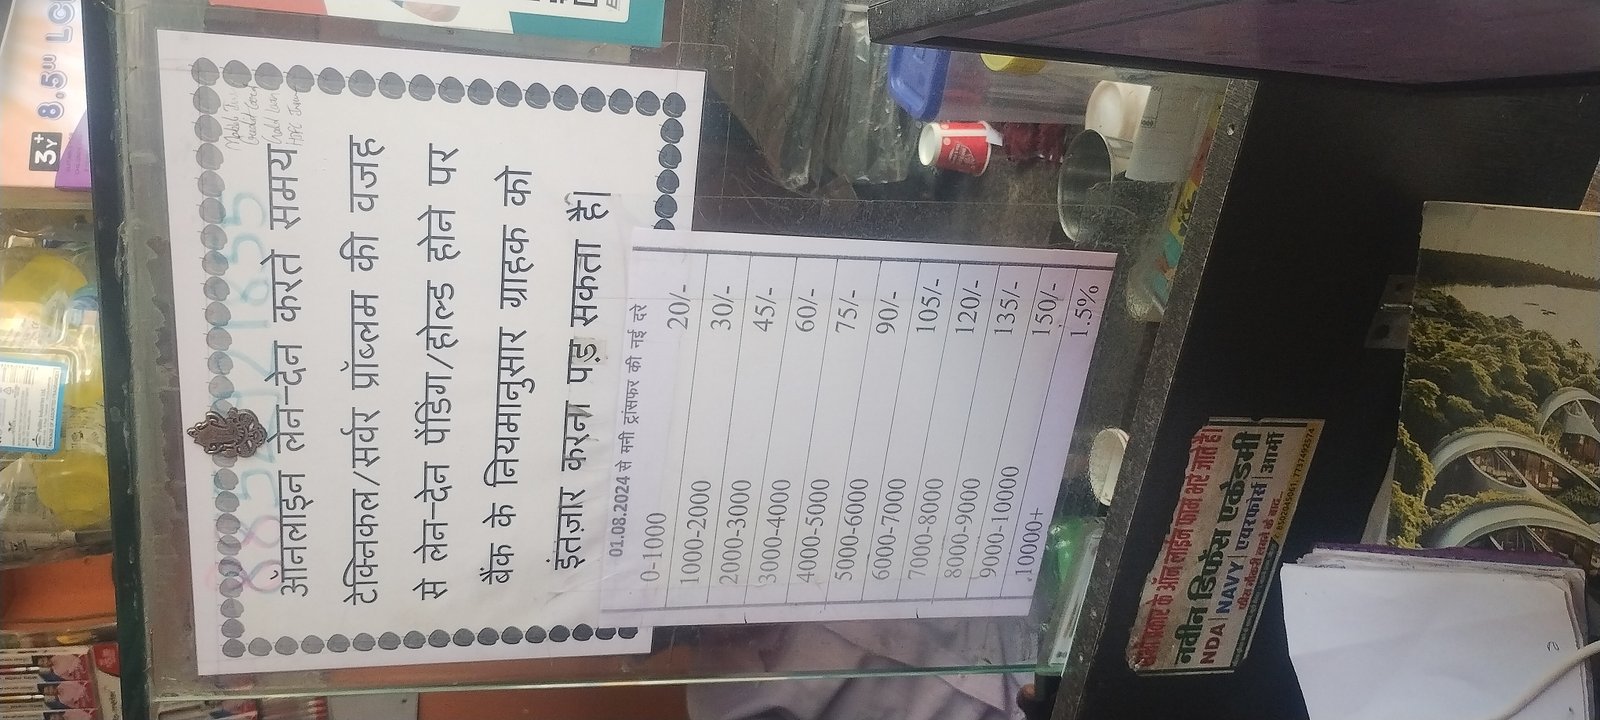 ऑनलाइन लेन-देन करते समय
टेक्निकल/सर्वर प्रॉब्लम की वजह
से लेन-देन पेंडिंग/होल्ड होने पर
बैंक के नियमानुसार ग्राहक को
इंतज़ार करना पड़ सकता हैं।
01.08.2024 से मनी ट्रांसफर की नई दरे
0-1000 20/-
1000-2000 30/-
2000-3000 45/-
3000-4000 60/-
4000-5000 75/-
5000-6000 90/-
6000-7000 105/-
7000-8000 120/-
8000-9000 135/-
9000-10000 150/-
10000+ 1.5%
सभी प्रकार के ऑन लाईन फार्म भरे जाते है।
नवीन डिफेंस एकेडमी
NDA | NAVY एयरफोर्स | आर्मी
3+
Y
8.5" LC